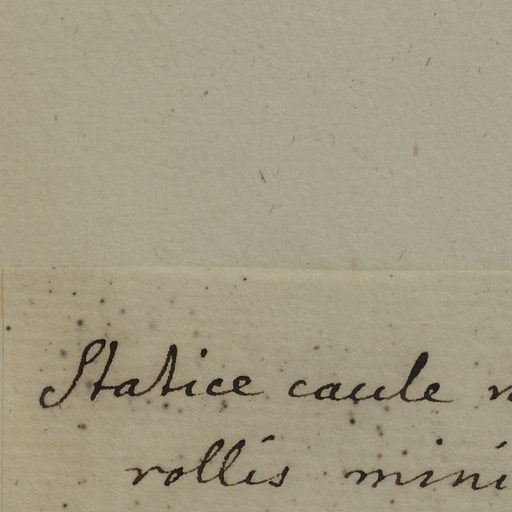 Statice caule n
rollis mini